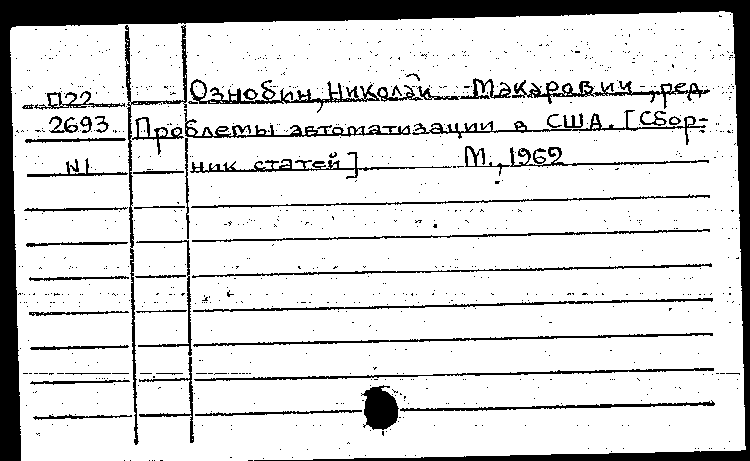 П22 Ознобин, Николай Макарович, ред.
2693 Проблемы автоматизации в США. [Сбор-
N1 ник статей] М., 1962